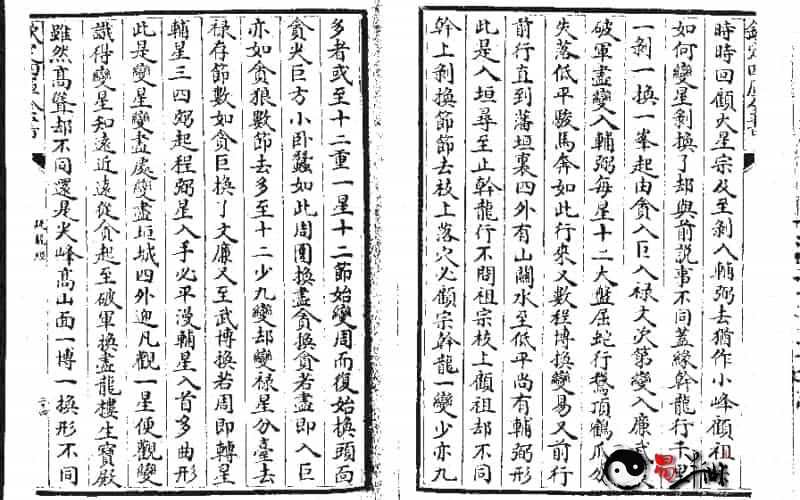 欽定四庫全書
時時回顧火星宗及至剝入輔弼去猶作小峰顧祖
如何變星剝換了却與前說事不同蓋縁幹龍行千里
一剝一換一峯起由貪入巨入禄文次第變入廉武
破軍盡變入輔弼每星十二大盤屈蛇行鵞頂鶴爪分
失落低平駿馬奔如此行來又數程博換變易又前行
前行直到藩垣裏四外有山闗水至低平尚有輔弼形
此是入垣尋至止幹龍行不問祖宗枝上顧祖却不同
幹上剝換節節去枝上落穴必顧宗幹龍一變少亦九
多者或至十二重一星十二節始變周而復始換頭面
貪尖巨方小卧蠶如此周圍換盡貪換貪若盡即入巨
亦如貪狼數節去多至十二少九變却變禄星分臺去
禄存節數如貪巨換了文廉又至武博換若周即轉星
輔星三四弼起程弼星入手必平漫輔星入首多曲形
此是變星變盡處變盡垣城四外迎凡觀一星便觀變
識得變星知遠近遠從貪起至破軍換盡龍樓生寶殿
雖然高聳却不同還是尖峰高山面一博一換形不同
欽定四庫全書
龍經
易